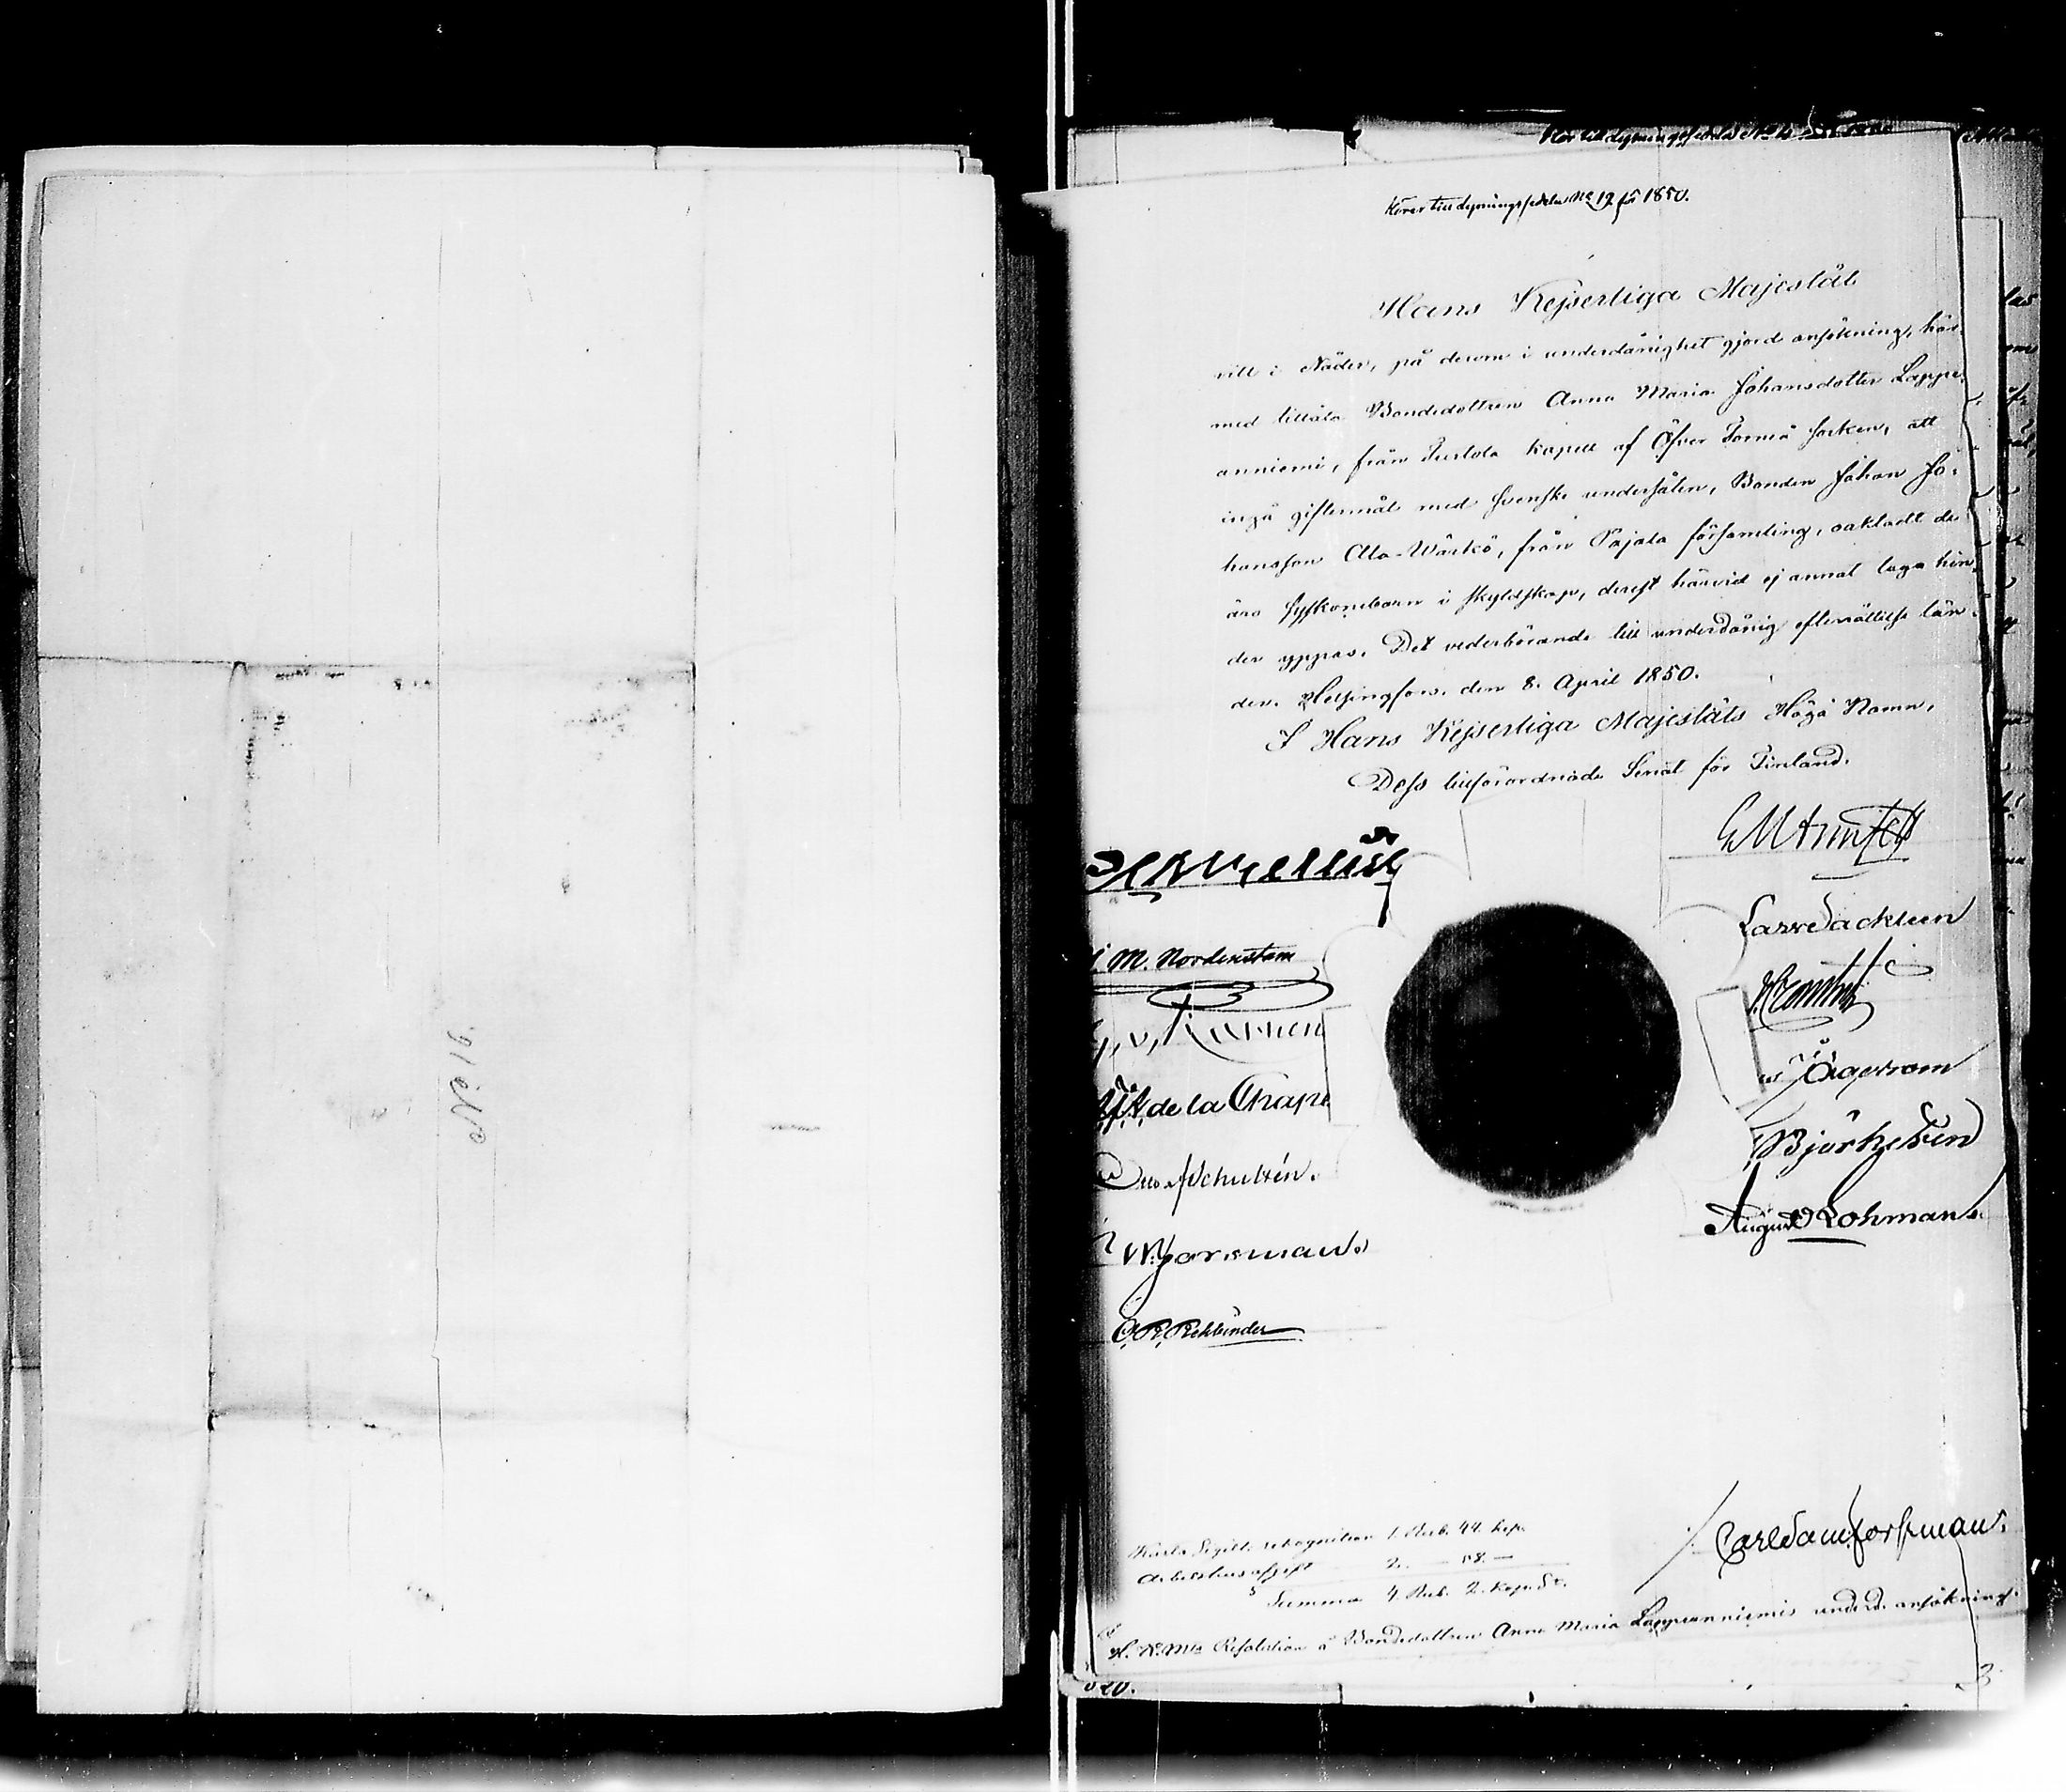 N:o 16
Hörer till dypningssedeln No 19 för 1850.
Hans Kejserliga Majestät
vill i Nåder, på derom i underdånighet gjord ansökning, här-
med tillåta Bondedottren Anna Maria Johansdotter Lappe-
anniemi, från Turtola kapell af Öfver Torneå socken, att
ingå giftermål med Svenske undersåten, Bonden Johan Jo-
hansson Ala-Wärkö, från Pajala församling, oaktadt de
äro syskonebarn i skyldskap, derest härvid ej annat laga hin-
der yppas. Det vederbörande till underdånig efterrättelse län-
der. Helsingfors, den 8. April 1850.
I Hans Kejserliga Majestäts Höga Namn,
Dess tillförordnade Senat för Finland.
Lars Sackleen
M. Nordenstam
de la Chape
Otto af Schultén.
Björksten
August Lohman.
W. Forsman.
O. R. Rehbinder
Carl Sam. Forsman.
Karta Sigill. rekognition 1. Rub. 44. kop.
Arbetshusafgift 2. — 58. —
Summa 4. Rub. 2. kop. Sr.
H. K. M:ts Resolution å Bondedottren Anna Maria Lappeanniemis underd. ansökning.
3